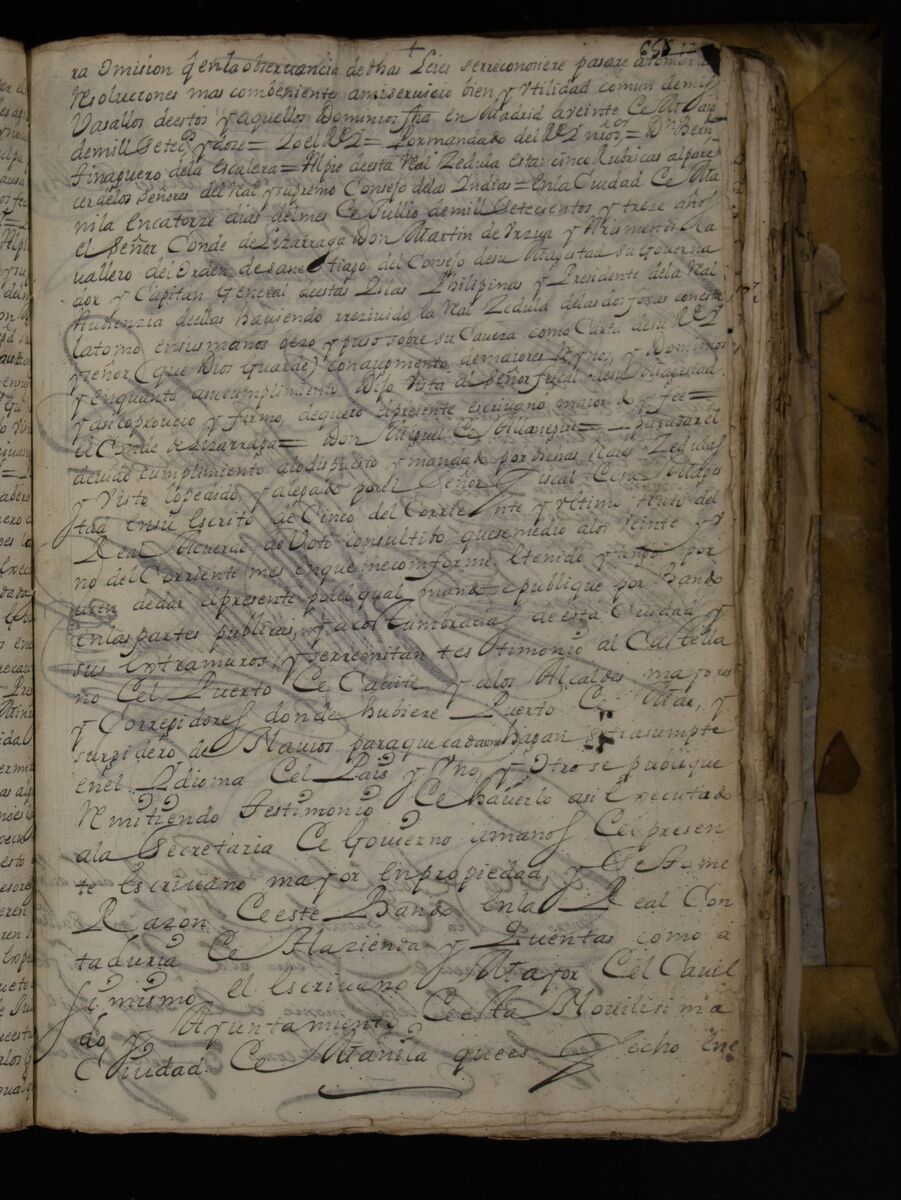 +
ra omision q̃ en la observancia de dhas Leies se rreconosiere pasare a tomar las
Resoluciones mas combeniente a mi servicio bien y Vtilidad comun de mis
Vasallos de estos y aquellos Dominios fha en Madrid a veinte Ce Maio
de mill Setecs y doze = Yo el Rey = Por mandado del Rey nro sr = Dn Bern
Tinaguero de la escalera = Al pie de esta Real Zedula estan cinco Rubricas al pare
cer de los Señores del Real y supremo Consejo de las Yndias = En la Ciudad Ce Ma
nila en catorze dias del mes Ce Jullio de mill Setecientos y treze años
el Señor Conde de Lizarraga Don Martin de Vrzua y Arismendi Ca
vallero del Orden de sanctiago del Consejo de su Magestad su Governa
dor y Capitan General de estas Yslas Philipinas y Presidente de la Real
Audienzia de ellas haviendo rrezivido la Real Zedula de las dos foxas con esta
la tomo en sus manos bezo y puso sobre su Caveza como Carta de su Rey
y señor (que Dios Guarde) con augmento de maiores Reynos, y Dominios
y en quanto a su cumplimiento Dijo Vista al Señor fiscal de su Magestad
y asi lo proveio y firmo de que io el presente escrivano maior doy fee =
El Conde de Lizarraga = Don Miguel Ce Allanegui = Y para dar el
devido cumplimiento a lo dispuesto y mandado por dichas reales Zedulas
y Visto lo pedido y alegado por el Señor Fiscal Ce su Mages
tad en su Escrito de Cinco del Corriente y Vltimo Auto del
Real Acuerdo de Voto consultibo que se me dio a los Veinte y V
no del Corriente mes en que me comforme, e tenido y tengo por
vien de dar el presente por el qual mando se publique por Bando
en las partes publicas, y acostumbradas de esta Ciudad y
sus Extramuros, y se rremitan testimonio al Castella
no Cel Puerto Ce Cavite, y a los Alcaldes mayores
y Corregidores donde hubiere Puerto Ce Mar, y
surgidero de Navios para que cada uno hagan se trasumpte
en el Ydioma Cel Pais y Vno, y Otro se publique
Remitiendo Testimonio Ce haverlo asi Executado
a la Secretaria Ce Govierno y manos Cel presen
te Escrivano mayor en propiedad, y se tome
Razon Ce este Bando en la Real Con
taduria Ce Hazienda y Quentas como a
si mismo el Escrivano Mayor Cel Cavil
do y Ayuntamiento Ce esta Novilisima
Ciudad Ce Manila que es Fecho en